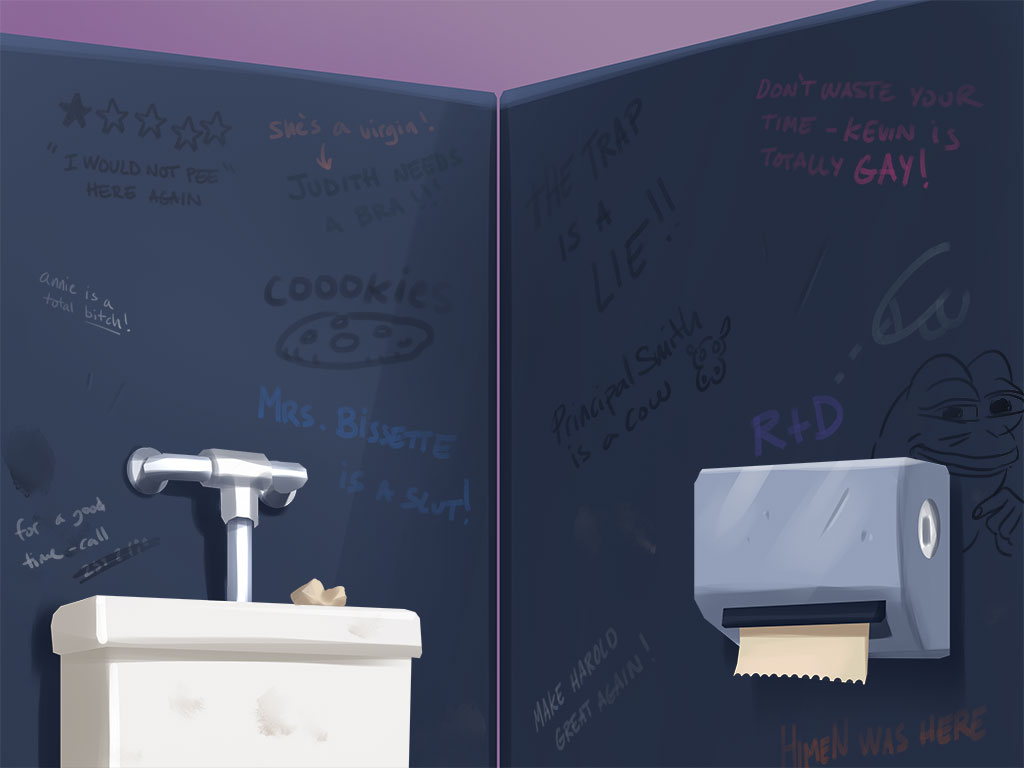 "I WOULD NOT PEE"
HERE AGAIN
She's a virgin!
JUDITH NEEDS
A BRA!!!
annie is a
total bitch!
COOOKIES
MRS. BISSETTE
IS A SLUT!
for a good
time - call
THE TRAP
IS A
LIE!!
DON'T WASTE YOUR
TIME - KEVIN IS
TOTALLY GAY!
Principal Smith
is a cow
R+D
MAKE HAROLD
GREAT AGAIN!
HIMEN WAS HERE